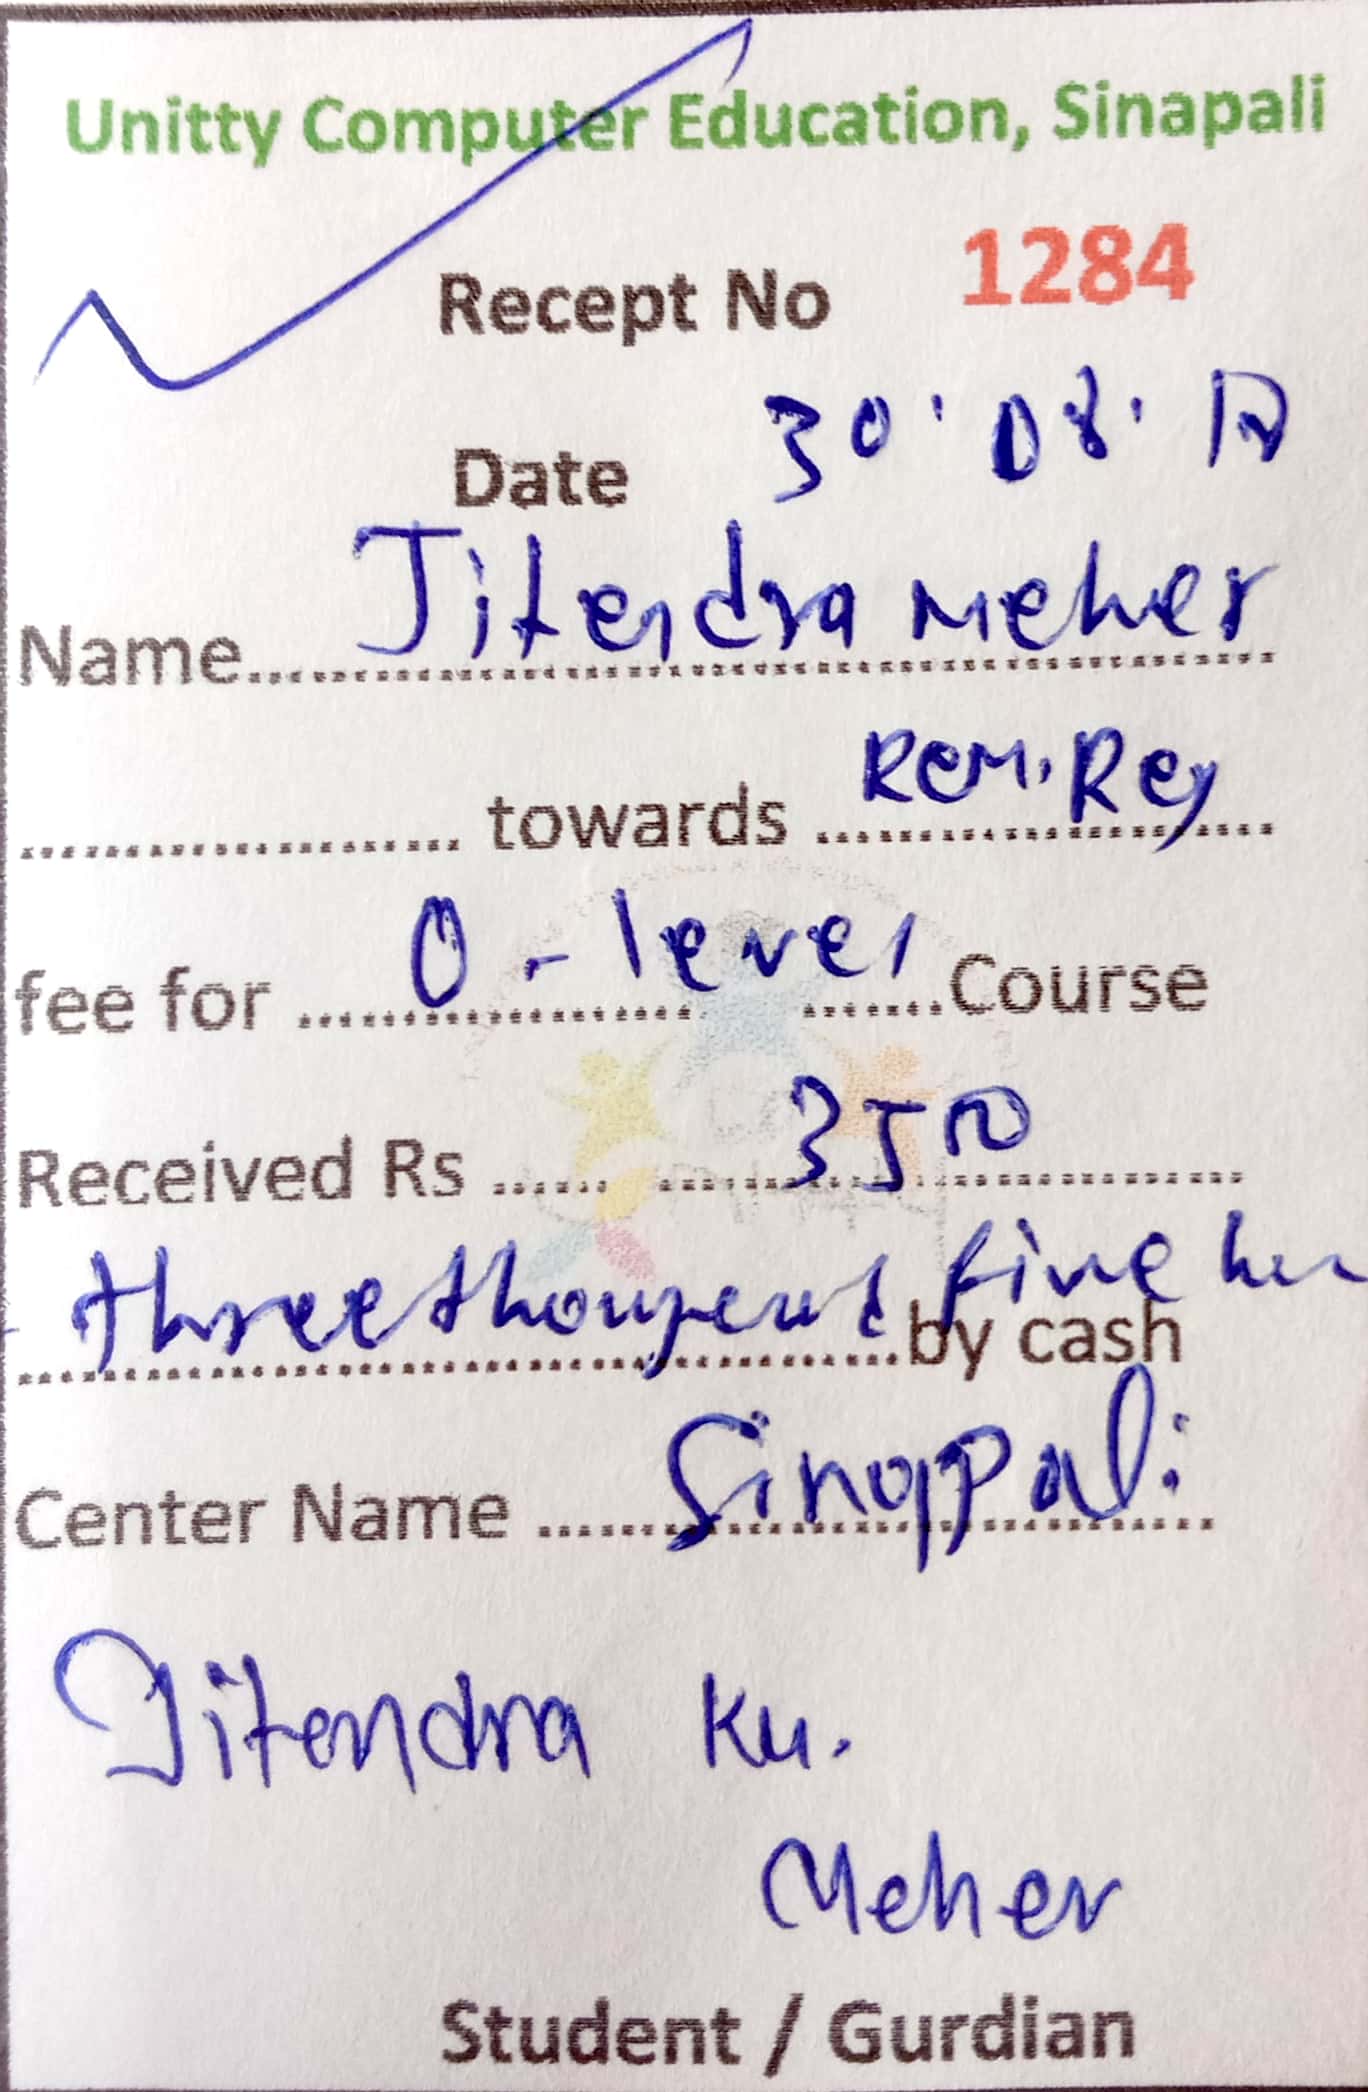 Unitty Computer Education, Sinapali
Recept No 1284
Date 30.08.
Name Jitendra meher
towards Rem.
fee for O-level Course
Received Rs 3500
three five hu
by cash
Center Name Sinappali
Jitendra Ku.
Meher
Student / Gurdian